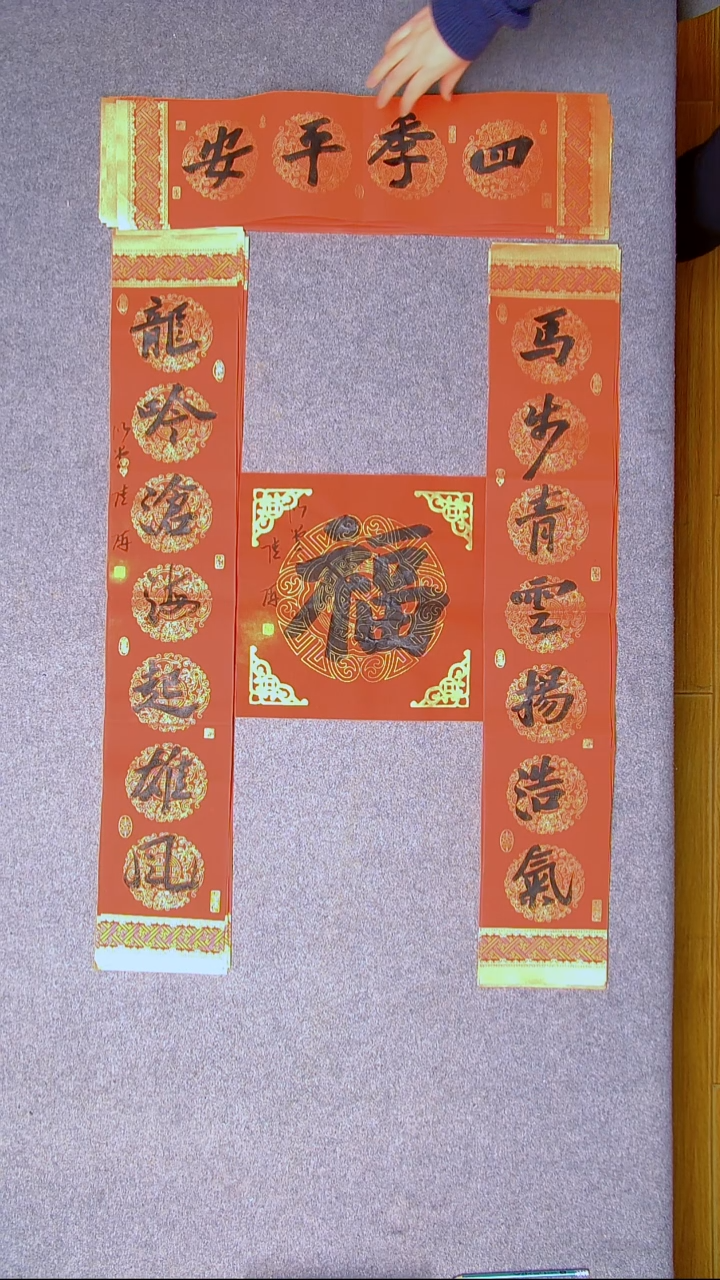 四季平安
馬步青雲揚浩氣
龍吟滄海起雄風
福